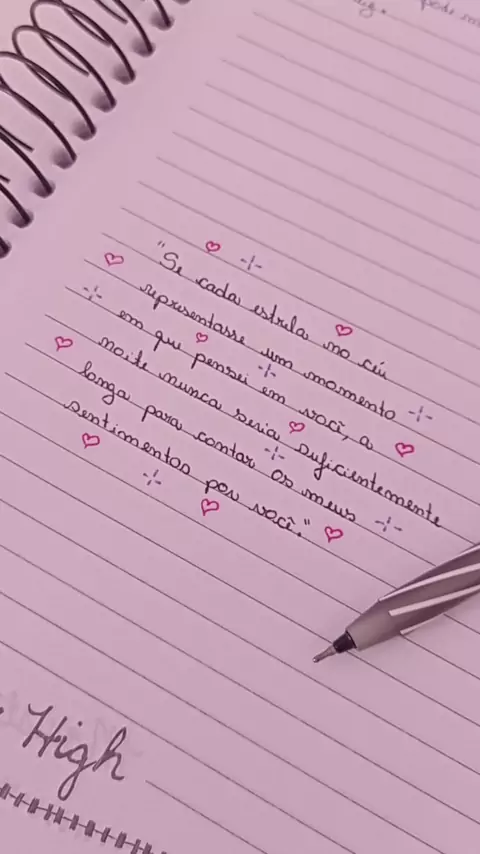 pode
"Se cada estrela no céu
representasse um momento
em que pensei em você, a
noite nunca seria suficientemente
longa para contar os meus
sentimentos por você."
High